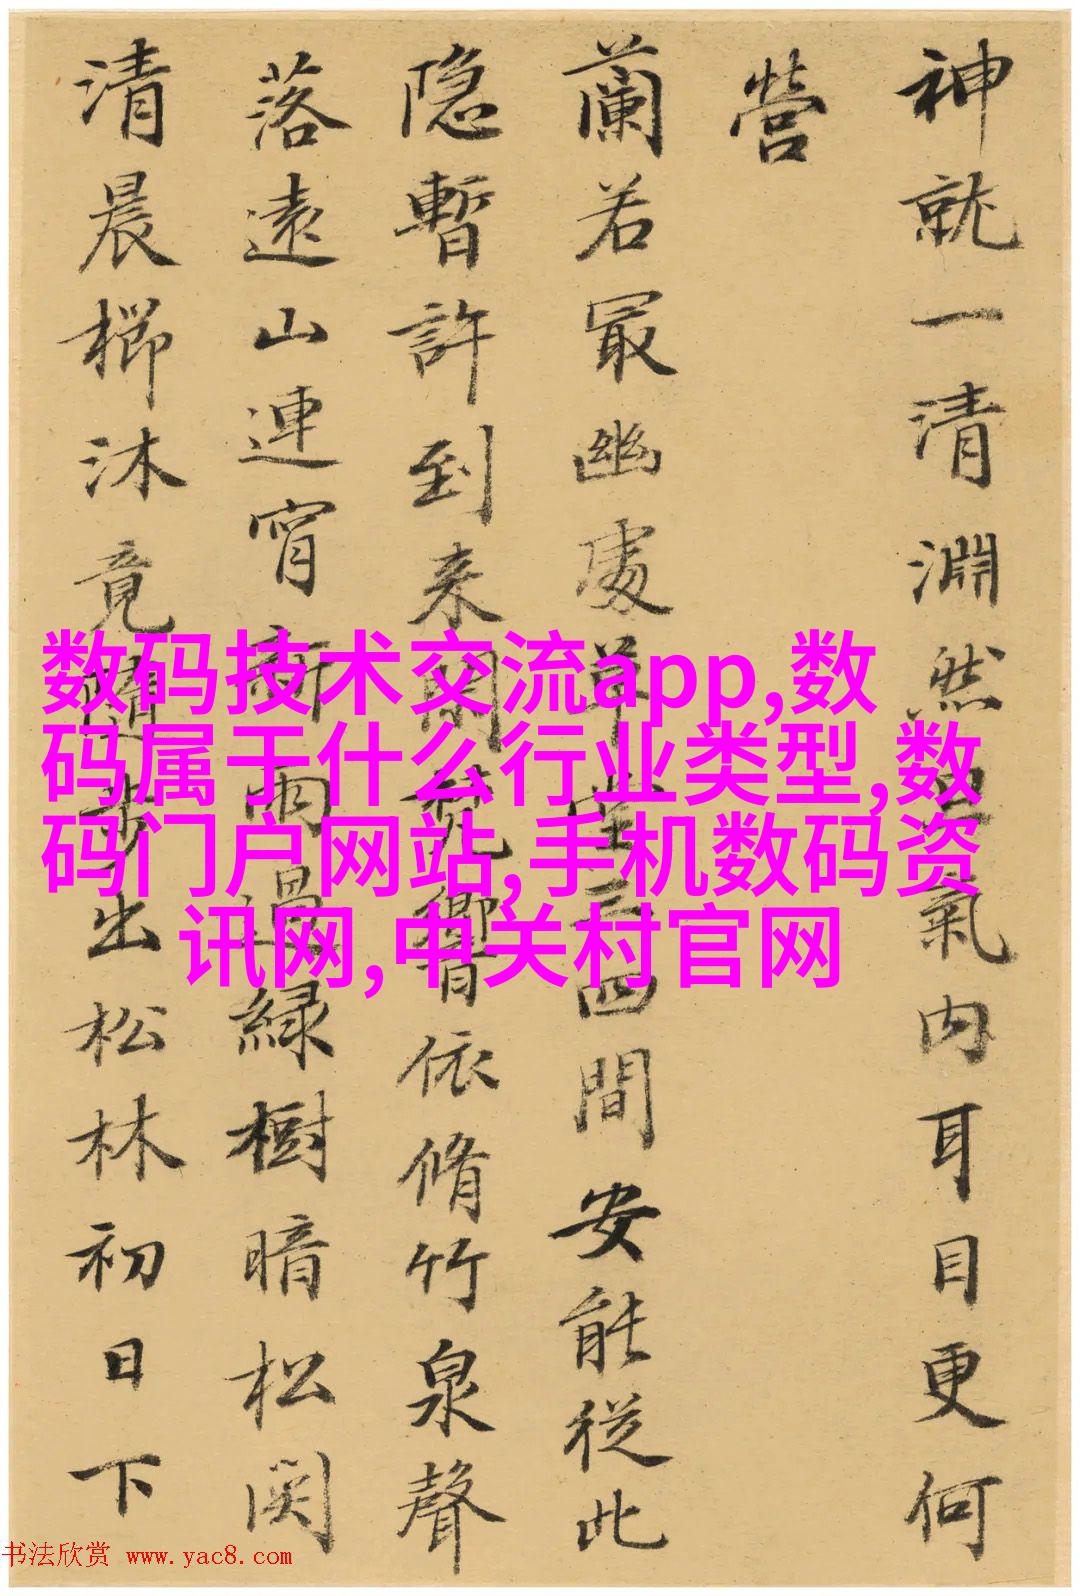 神就一清淵然氣内耳目更何
營
蘭若冣幽處草堂三四間安能從此
隐暫許到来閑梵響依脩竹泉聲
落遠山連宵新雨過緑樹暗松関
清晨櫛沐竟隨步出松林初日下
数码技术交流app,数
码属于什么行业类型,数
码门户网站,手机数码资
讯网,中关村官网
书法欣赏 www.yac8.com